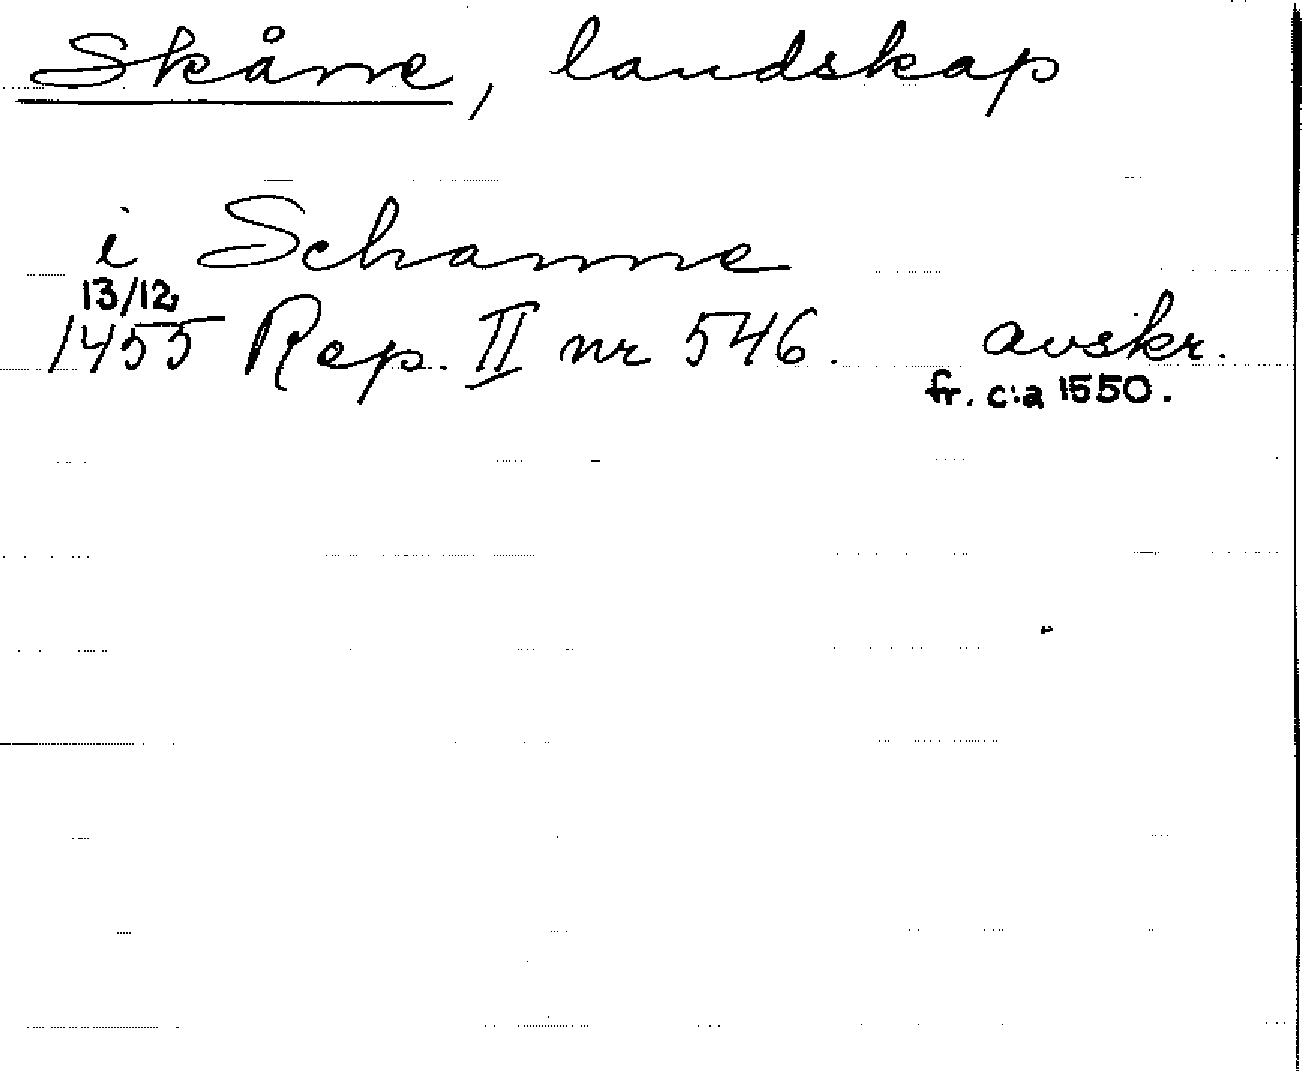 Skåne, landskap
i Schanne
13/12
1455 Rep. II nr 546. avskr.
fr. c:a 1550.